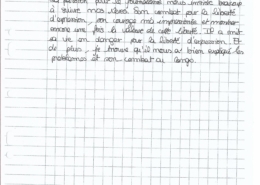 sa passion pour le journalisme nous incite beaucoup
à suivre nos rêves. Son combat pour la liberté
d'expression, son courage m'a impressionnée et montrer
encore une fois la valeur de cette liberté. Il a mit
sa vie en danger pour la liberté d'expression. Et
de plus, je trouve qu'il nous a bien expliqué les
problèmes et son combat au Congo.